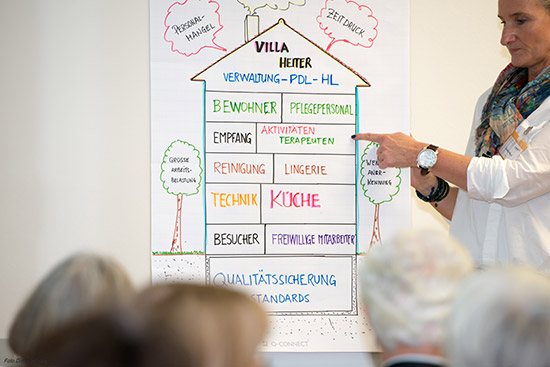 PERSONAL-
MANGEL
ZEITDRUCK
VILLA
HEITER
VERWALTUNG-PDL-HL
BEWOHNER
PFLEGEPERSONAL
EMPFANG
AKTIVITÄTEN
THERAPEUTEN
GROSSE
ARBEITS-
BELASTUNG
REINIGUNG
LINGERIE
WE
ANER-
KENNUNG
TECHNIK
KÜCHE
BESUCHER
FREIWILLIGE MITARBEITER
QUALITÄTSSICHERUNG
STANDARDS
CONNECT